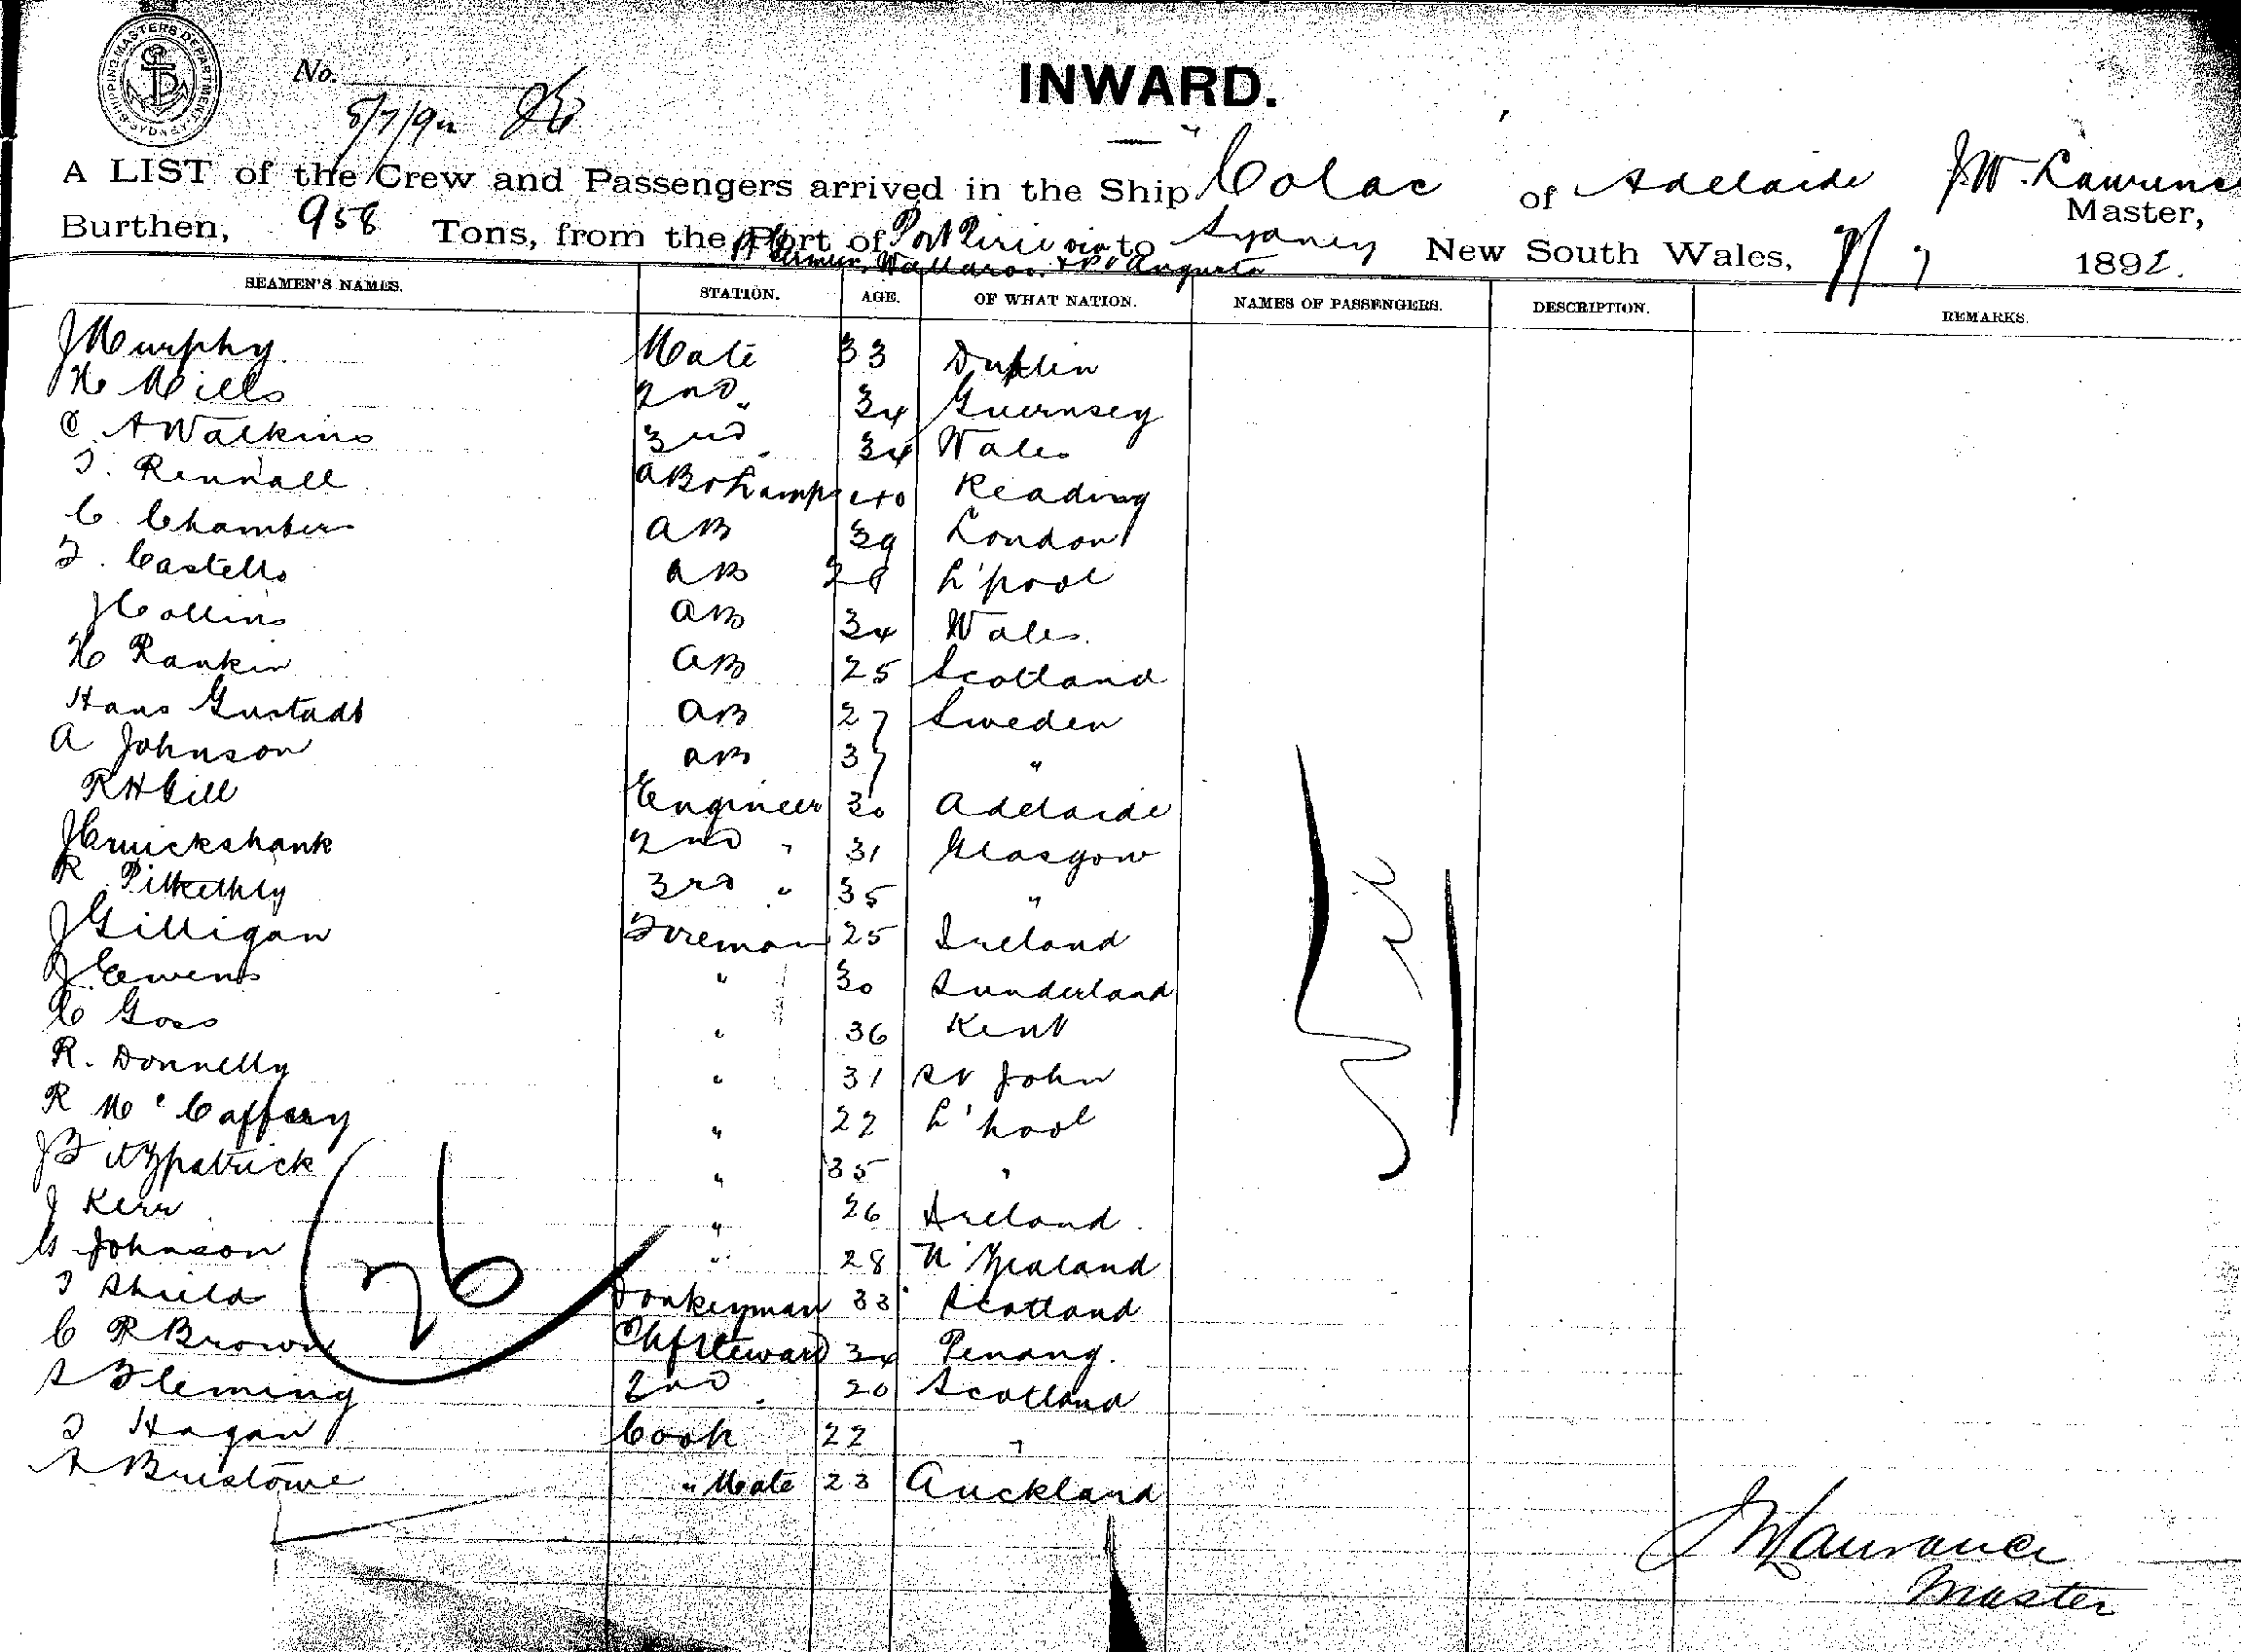 SHIPPING MASTERS DEPARTMENT SYDNEY
No.
INWARD.
8/7/92
A LIST of the Crew and Passengers arrived in the Ship "Colac" of Adelaide J.W. Laurence Master,
Burthen, 958 Tons, from the Port of Port Pirie via to Sydney New South Wales, 7 1892.
Wallaroo & Pt Augusta
SEAMEN'S NAMES. STATION. AGE. OF WHAT NATION. NAMES OF PASSENGERS. DESCRIPTION. REMARKS.
J Murphy Mate 33 Dublin
H Mills 2nd " 34 Guernsey
C A Watkins 3rd " 34 Wales
T. Rennall AB & Lamps 40 Reading
C. Chambers AB 39 London
F. Castello AB 28 L'pool
J Collins AB 34 Wales.
H Rankin AB 25 Scotland
Hans Gustadt AB 27 Sweden
A Johnson AB 37 "
R H Gill Engineer 30 Adelaide
J Cruickshank 2nd " 31 Glasgow
R Pitkethly 3rd " 35 "
J Gilligan Fireman 25 Ireland
J. Ewens " 30 Sunderland
C Goss " 36 Kent
R. Donnelly " 31 St John
R McCaffery " 22 L'pool
J Fitzpatrick " 35 "
J Kerr " 26 Ireland.
G Johnson " 28 N Zealand
T Shield Donkeyman 33 Scotland
C R Brown Chf Steward 34 Penang.
S Fleming 2nd " 20 Scotland
T Hagan Cook 22 "
A Bristowe " Mate 23 Auckland
Nil
26
J W Laurance
Master